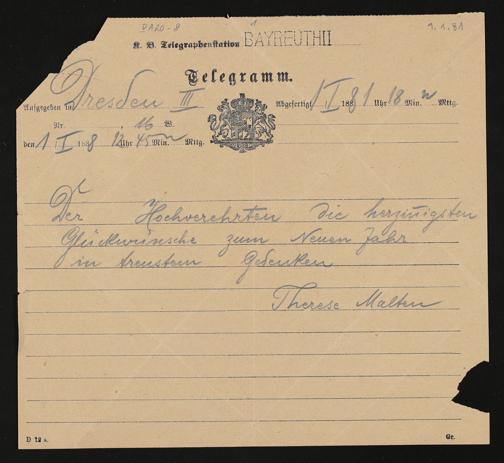 PA20-8 1 1.1.81
K. B. Telegraphenstation BAYREUTH II
Telegramm.
Aufgegeben in Dresden III Abgefertigt 1/I 1881 Uhr 18 Min. Mttg.
Nr. 16 W.
den 1/I 188 8 12 Uhr 45 Min. Mttg.
Der Hochverehrten die herzinigsten
Glückwünsche zum Neuen Jahr
in treustem Gedenken
Therese Malten
D 12 a. Gr.